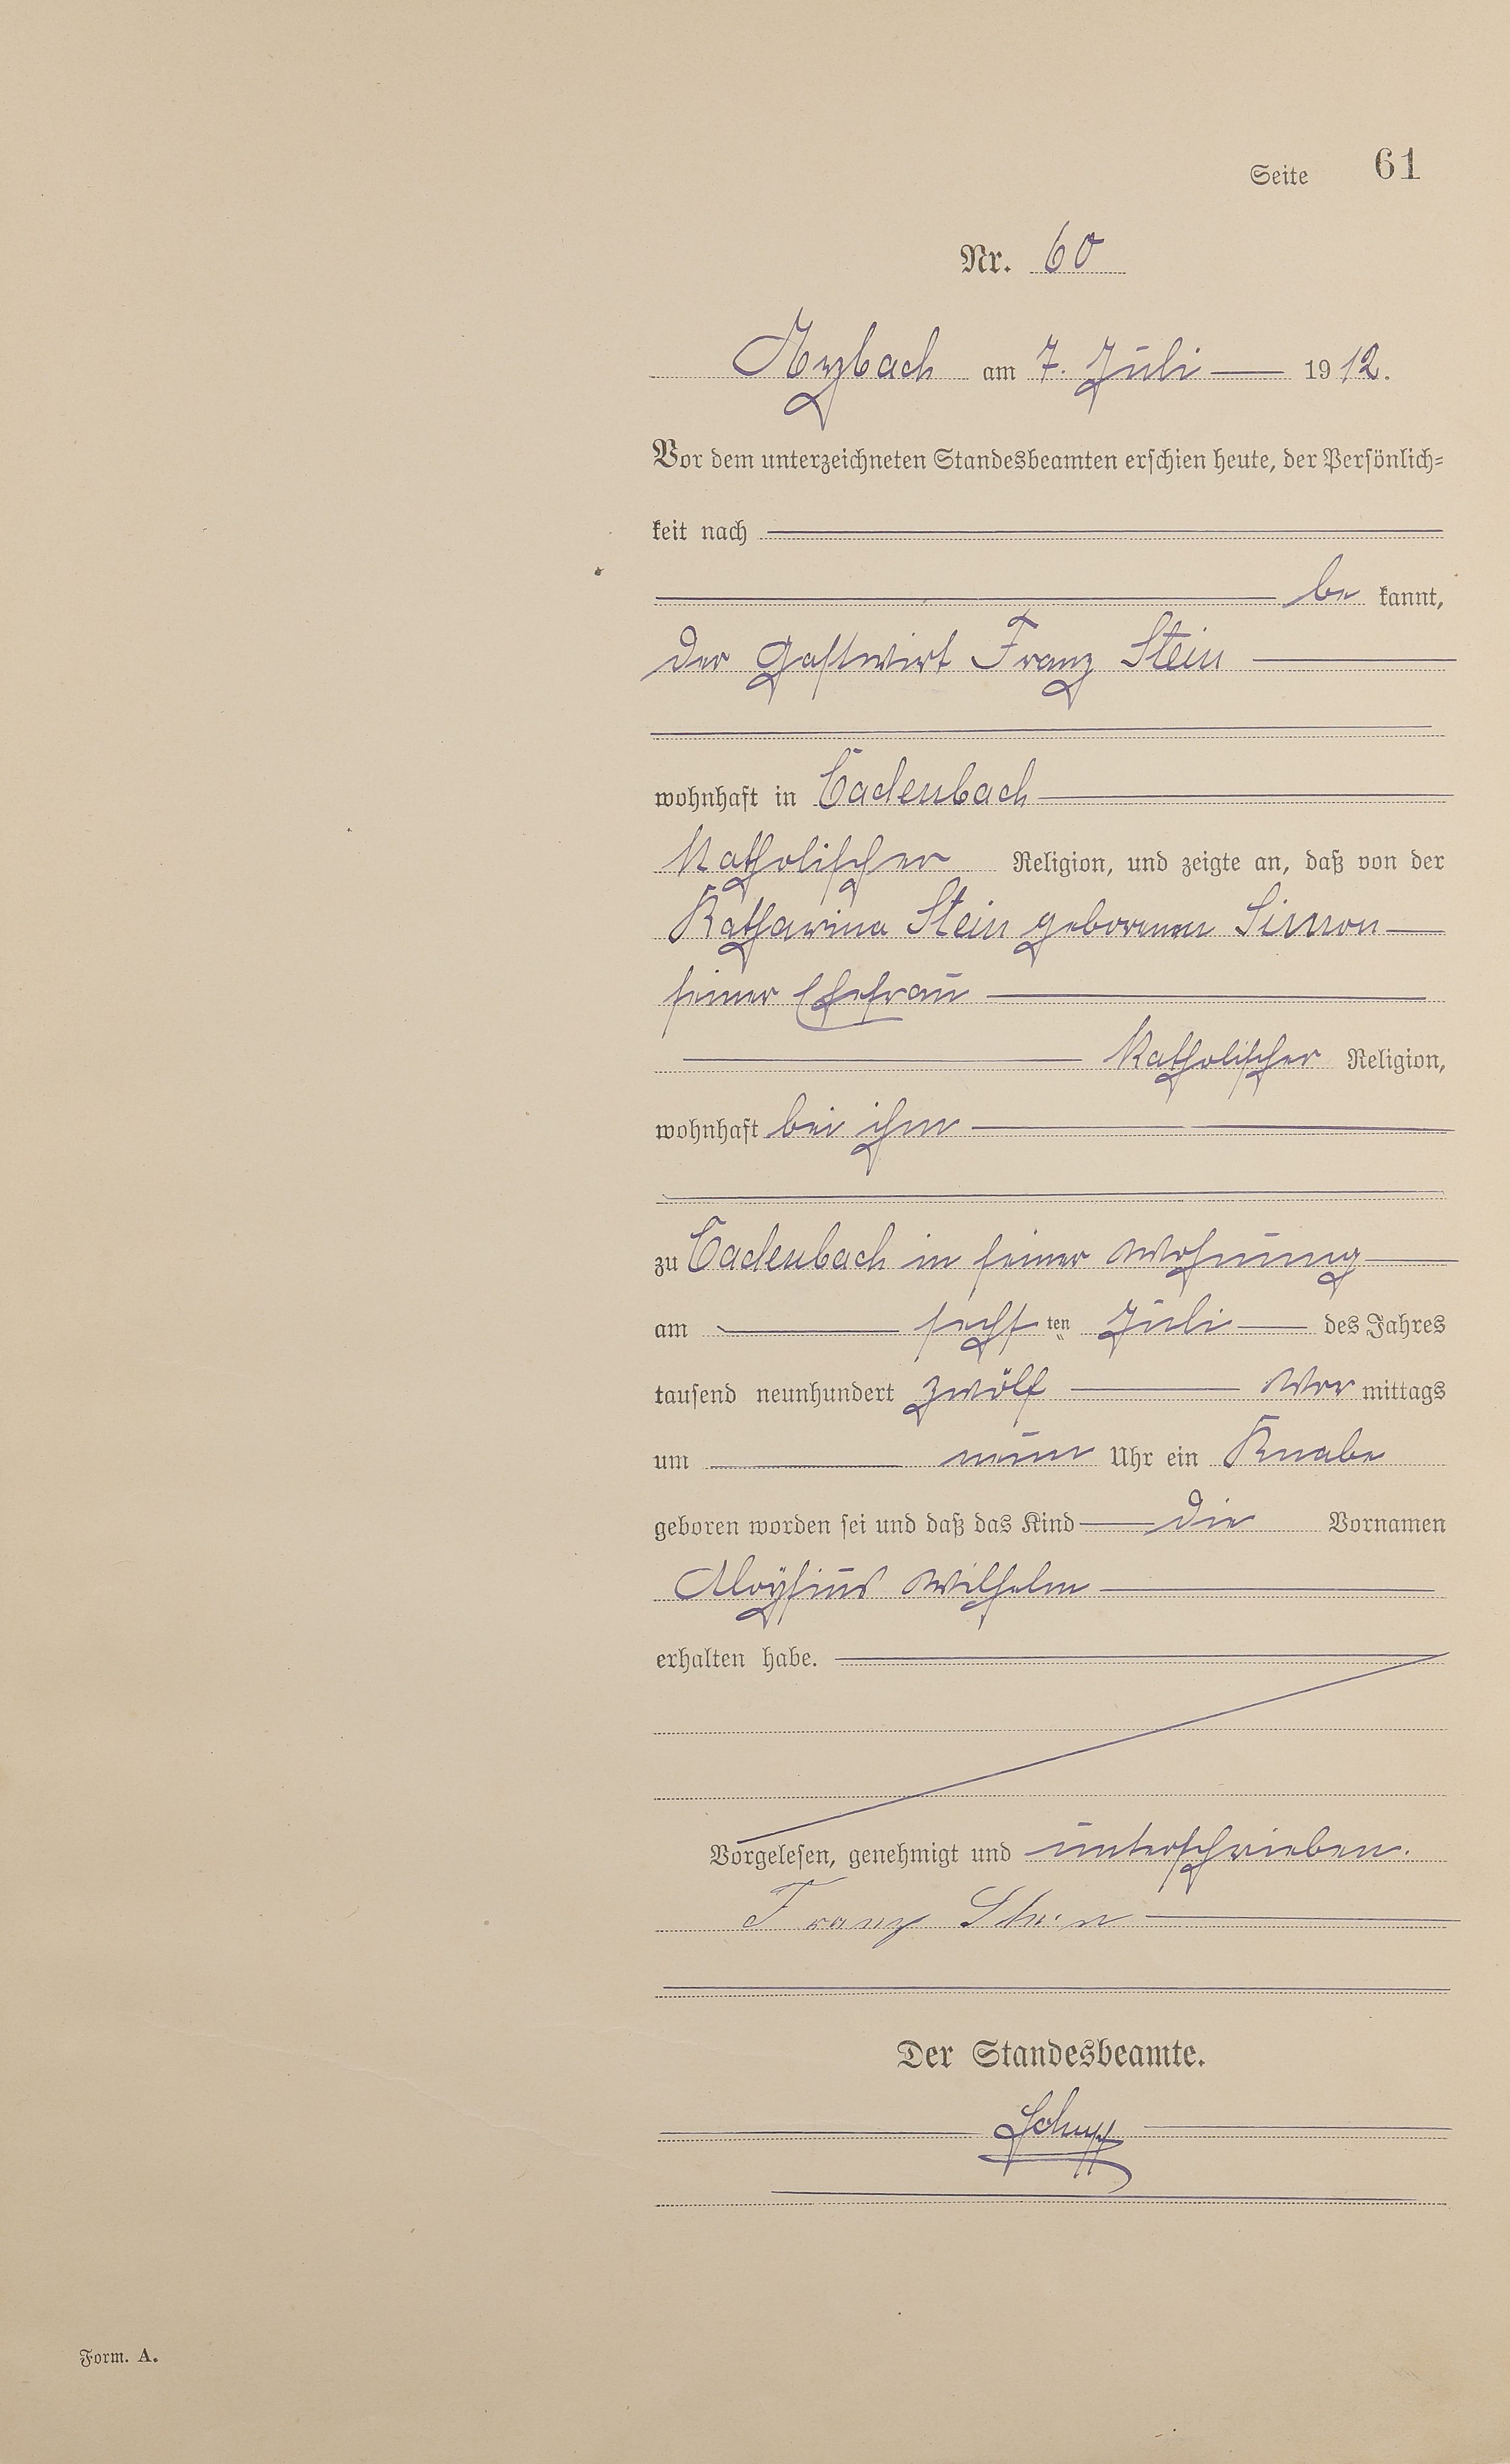 Seite 61
Nr. 60
Arzbach am 7. Juli 1912.
Vor dem unterzeichneten Standesbeamten erschien heute, der Persönlich=
keit nach
be kannt,
der Gastwirt Franz Stein
wohnhaft in Cadenbach
Katholischer Religion, und zeigte an, daß von der
Katharina Stein geborenen Simon
seiner Ehefrau
Katholischer Religion,
wohnhaft bei ihm
zu Cadenbach in seiner Wohnung
am sechsten Juli des Jahres
tausend neunhundert zwölf Vormittags
um neun Uhr ein Knabe
geboren worden sei und daß das Kind die Vornamen
Aloysius Wilhelm
erhalten habe.
Vorgelesen, genehmigt und unterschrieben.
Franz Stein
Der Standesbeamte.
Schupp
Form. A.